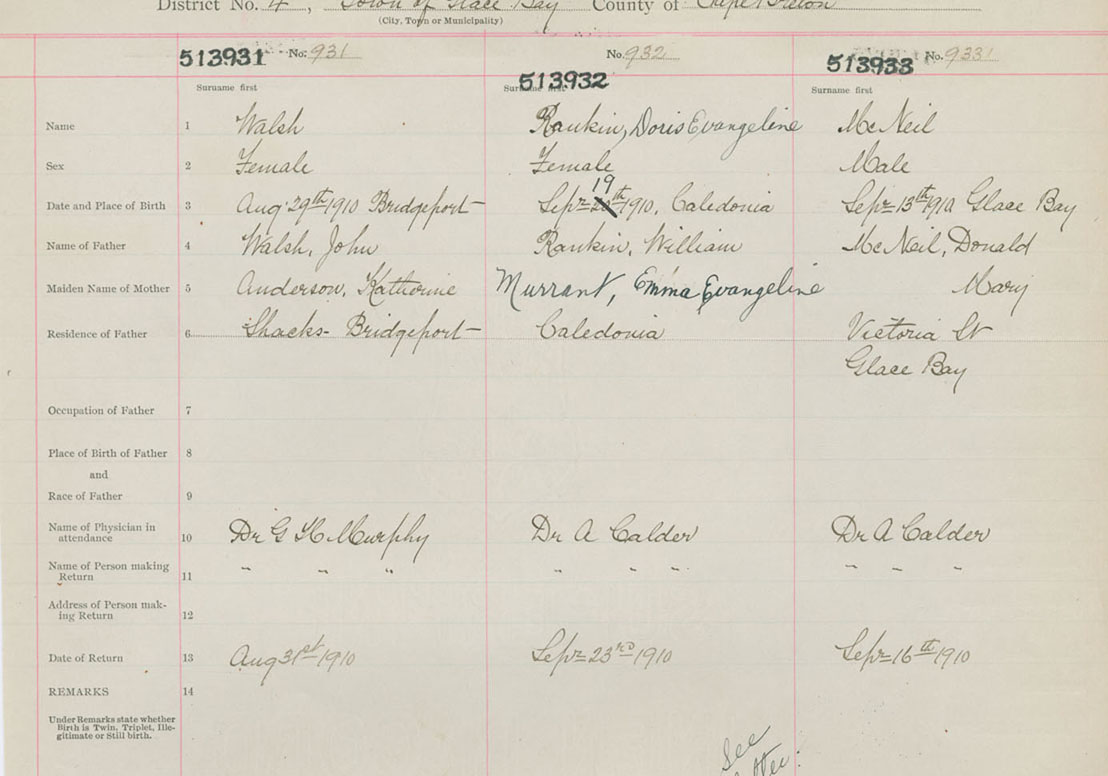 District No. 4, Town of Glace Bay County of Cape Breton
(City, Town or Municipality)
513931 No. 931 513932 No. 932 513933 No. 933
Surname first Surname first Surname first
Name 1 Walsh Rankin, Doris Evangeline McNeil
Sex 2 Female Female Male
Date and Place of Birth 3 Aug 29th 1910 Bridgeport Sept 19th 1910, Caledonia Sept 13th 1910 Glace Bay
Name of Father 4 Walsh, John Rankin, William McNeil, Donald
Maiden Name of Mother 5 Anderson, Katherine Murrant, Emma Evangeline Mary
Residence of Father 6 Shacks - Bridgeport Caledonia Victoria St
Glace Bay
Occupation of Father 7
Place of Birth of Father 8
and
Race of Father 9
Name of Physician in
attendance 10 Dr G H Murphy Dr A Calder Dr A Calder
Name of Person making
Return 11 " " " " " " " " "
Address of Person mak-
ing Return 12
Date of Return 13 Aug 31st 1910 Sept 23rd 1910 Sept 16th 1910
REMARKS 14
Under Remarks state whether
Birth is Twin, Triplet, Ille-
gitimate or Still birth.
See